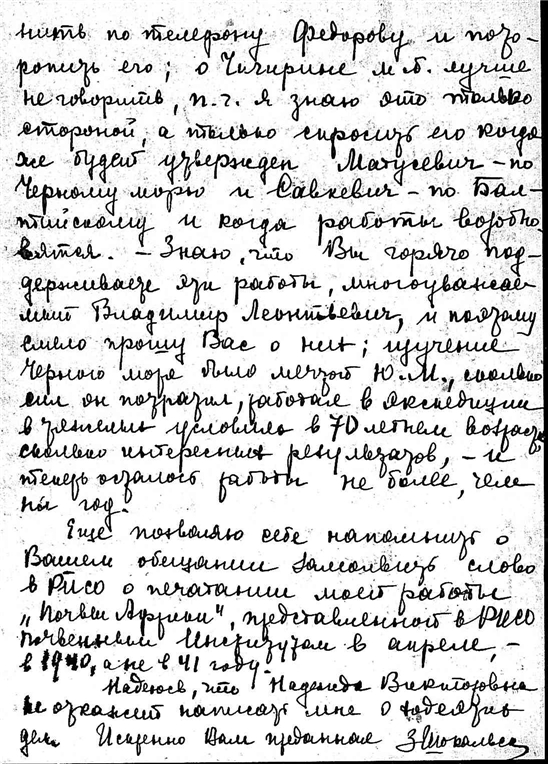 нить по телефону Федорову и пото-
ропить его; о Чичирине м.б. лучше
не говорить, п.ч. я знаю это только
стороной, а только спросить его когда
же будет утвержден Матусевич – по
Черному морю и Савкевич – по Бал-
тийскому и когда работы возобно-
вятся. – Знаю, что Вы горячо под-
держиваете эти работы, многоуважае-
мый Владимир Леонтьевич, и поэтому
смело прошу Вас о них; изучение
Черного моря было мечтой Ю.М., сколько
сил он потратил, работая в экспедиции
в тяжелых условиях в 70 летнем возрасте
сколько интересных результатов, – и
теперь осталось работы не более, чем
на год.
Еще позволяю себе напомнить о
Вашем обещании замолвить слово
в РИСО о печатании моей работы
„Почвы Африки", представленной в РИСО
Почвенным Институтом в апреле, –
в 1940, а не в 41 году.
Надеюсь, что Надежда Викторовна
не откажет написать мне о
дел. Искренно Вам преданная ЗШокальск